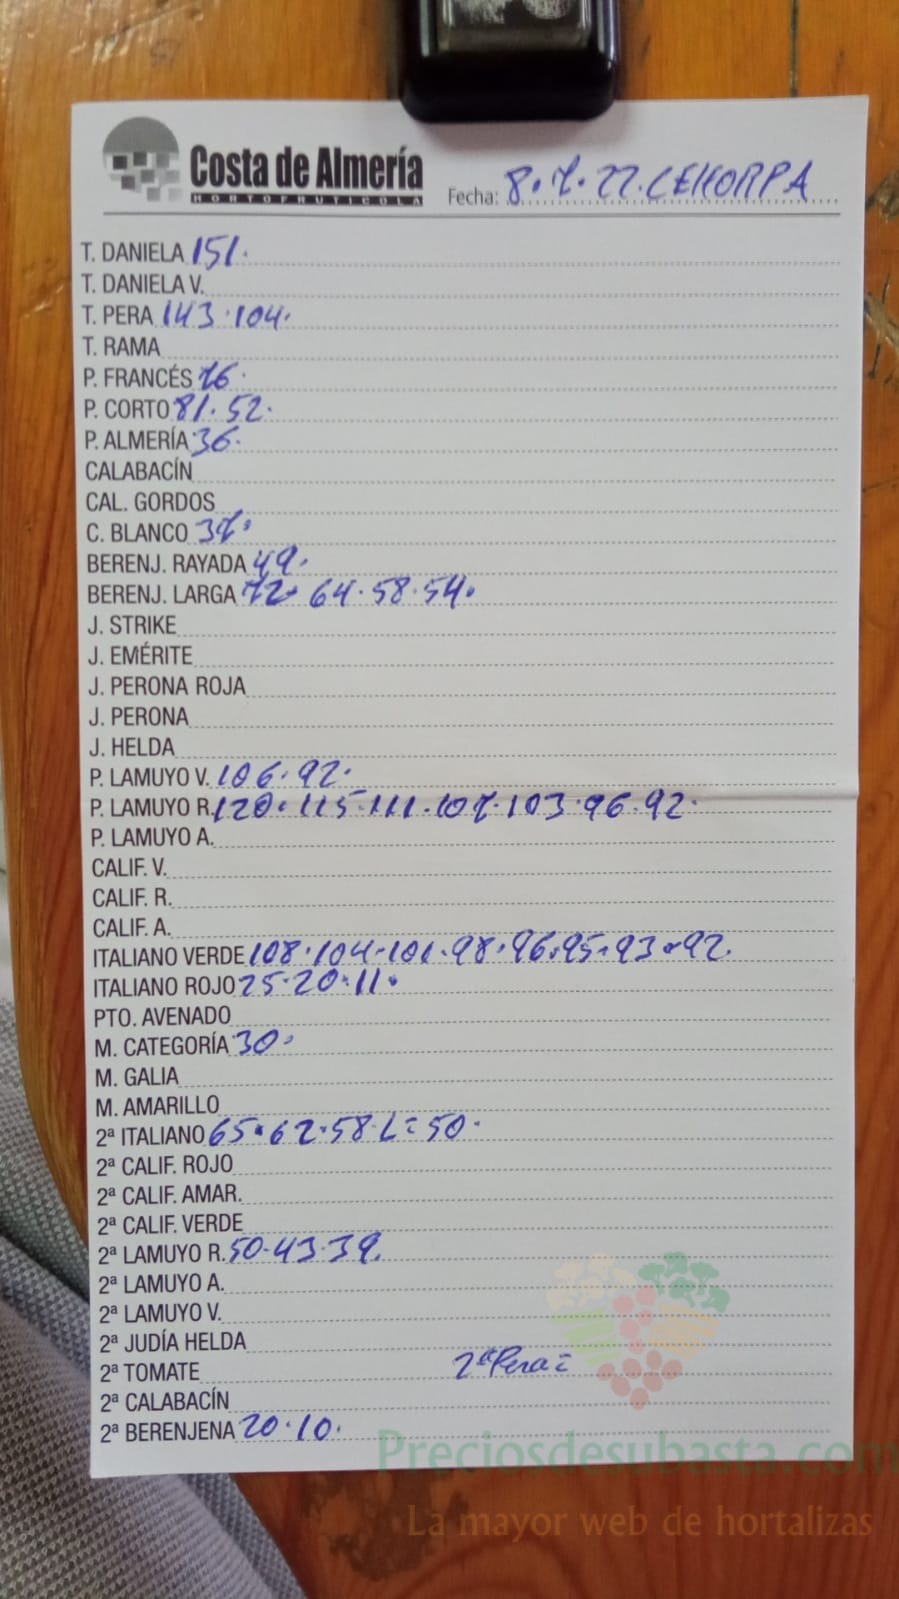 Costa de Almería
HORTOFRUTICOLA
Fecha: 8.7.22. CEHORPA
T. DANIELA 151.
T. DANIELA V.
T. PERA 143.104.
T. RAMA
P. FRANCÉS 76.
P. CORTO 81.52.
P. ALMERÍA 36.
CALABACÍN
CAL. GORDOS
C. BLANCO 37.
BERENJ. RAYADA 49.
BERENJ. LARGA 72. 64.58.54.
J. STRIKE
J. EMÉRITE
J. PERONA ROJA
J. PERONA
J. HELDA
P. LAMUYO V. 106.92.
P. LAMUYO R. 120.115.111.107.103.96.92.
P. LAMUYO A.
CALIF. V.
CALIF. R.
CALIF. A.
ITALIANO VERDE 108.104.101.98.96.95.93.92.
ITALIANO ROJO 25.20.11.
PTO. AVENADO
M. CATEGORÍA 30.
M. GALIA
M. AMARILLO
2ª ITALIANO 65.62.58 L=50.
2ª CALIF. ROJO
2ª CALIF. AMAR.
2ª CALIF. VERDE
2ª LAMUYO R. 50.43.39.
2ª LAMUYO A.
2ª LAMUYO V.
2ª JUDÍA HELDA
2ª TOMATE 2ª Pera =
2ª CALABACÍN
2ª BERENJENA 20.10.
Preciosdesubasta.com
La mayor web de hortalizas